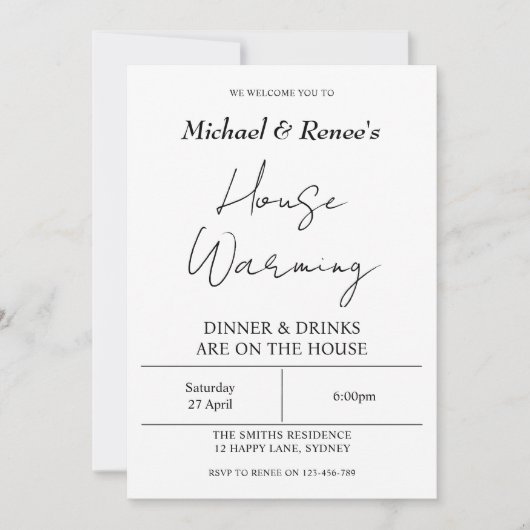 WE WELCOME YOU TO
Michael & Renee's
House
Warming
DINNER & DRINKS
ARE ON THE HOUSE
Saturday
27 April
6:00pm
THE SMITHS RESIDENCE
12 HAPPY LANE, SYDNEY
RSVP TO RENEE ON 123-456-789